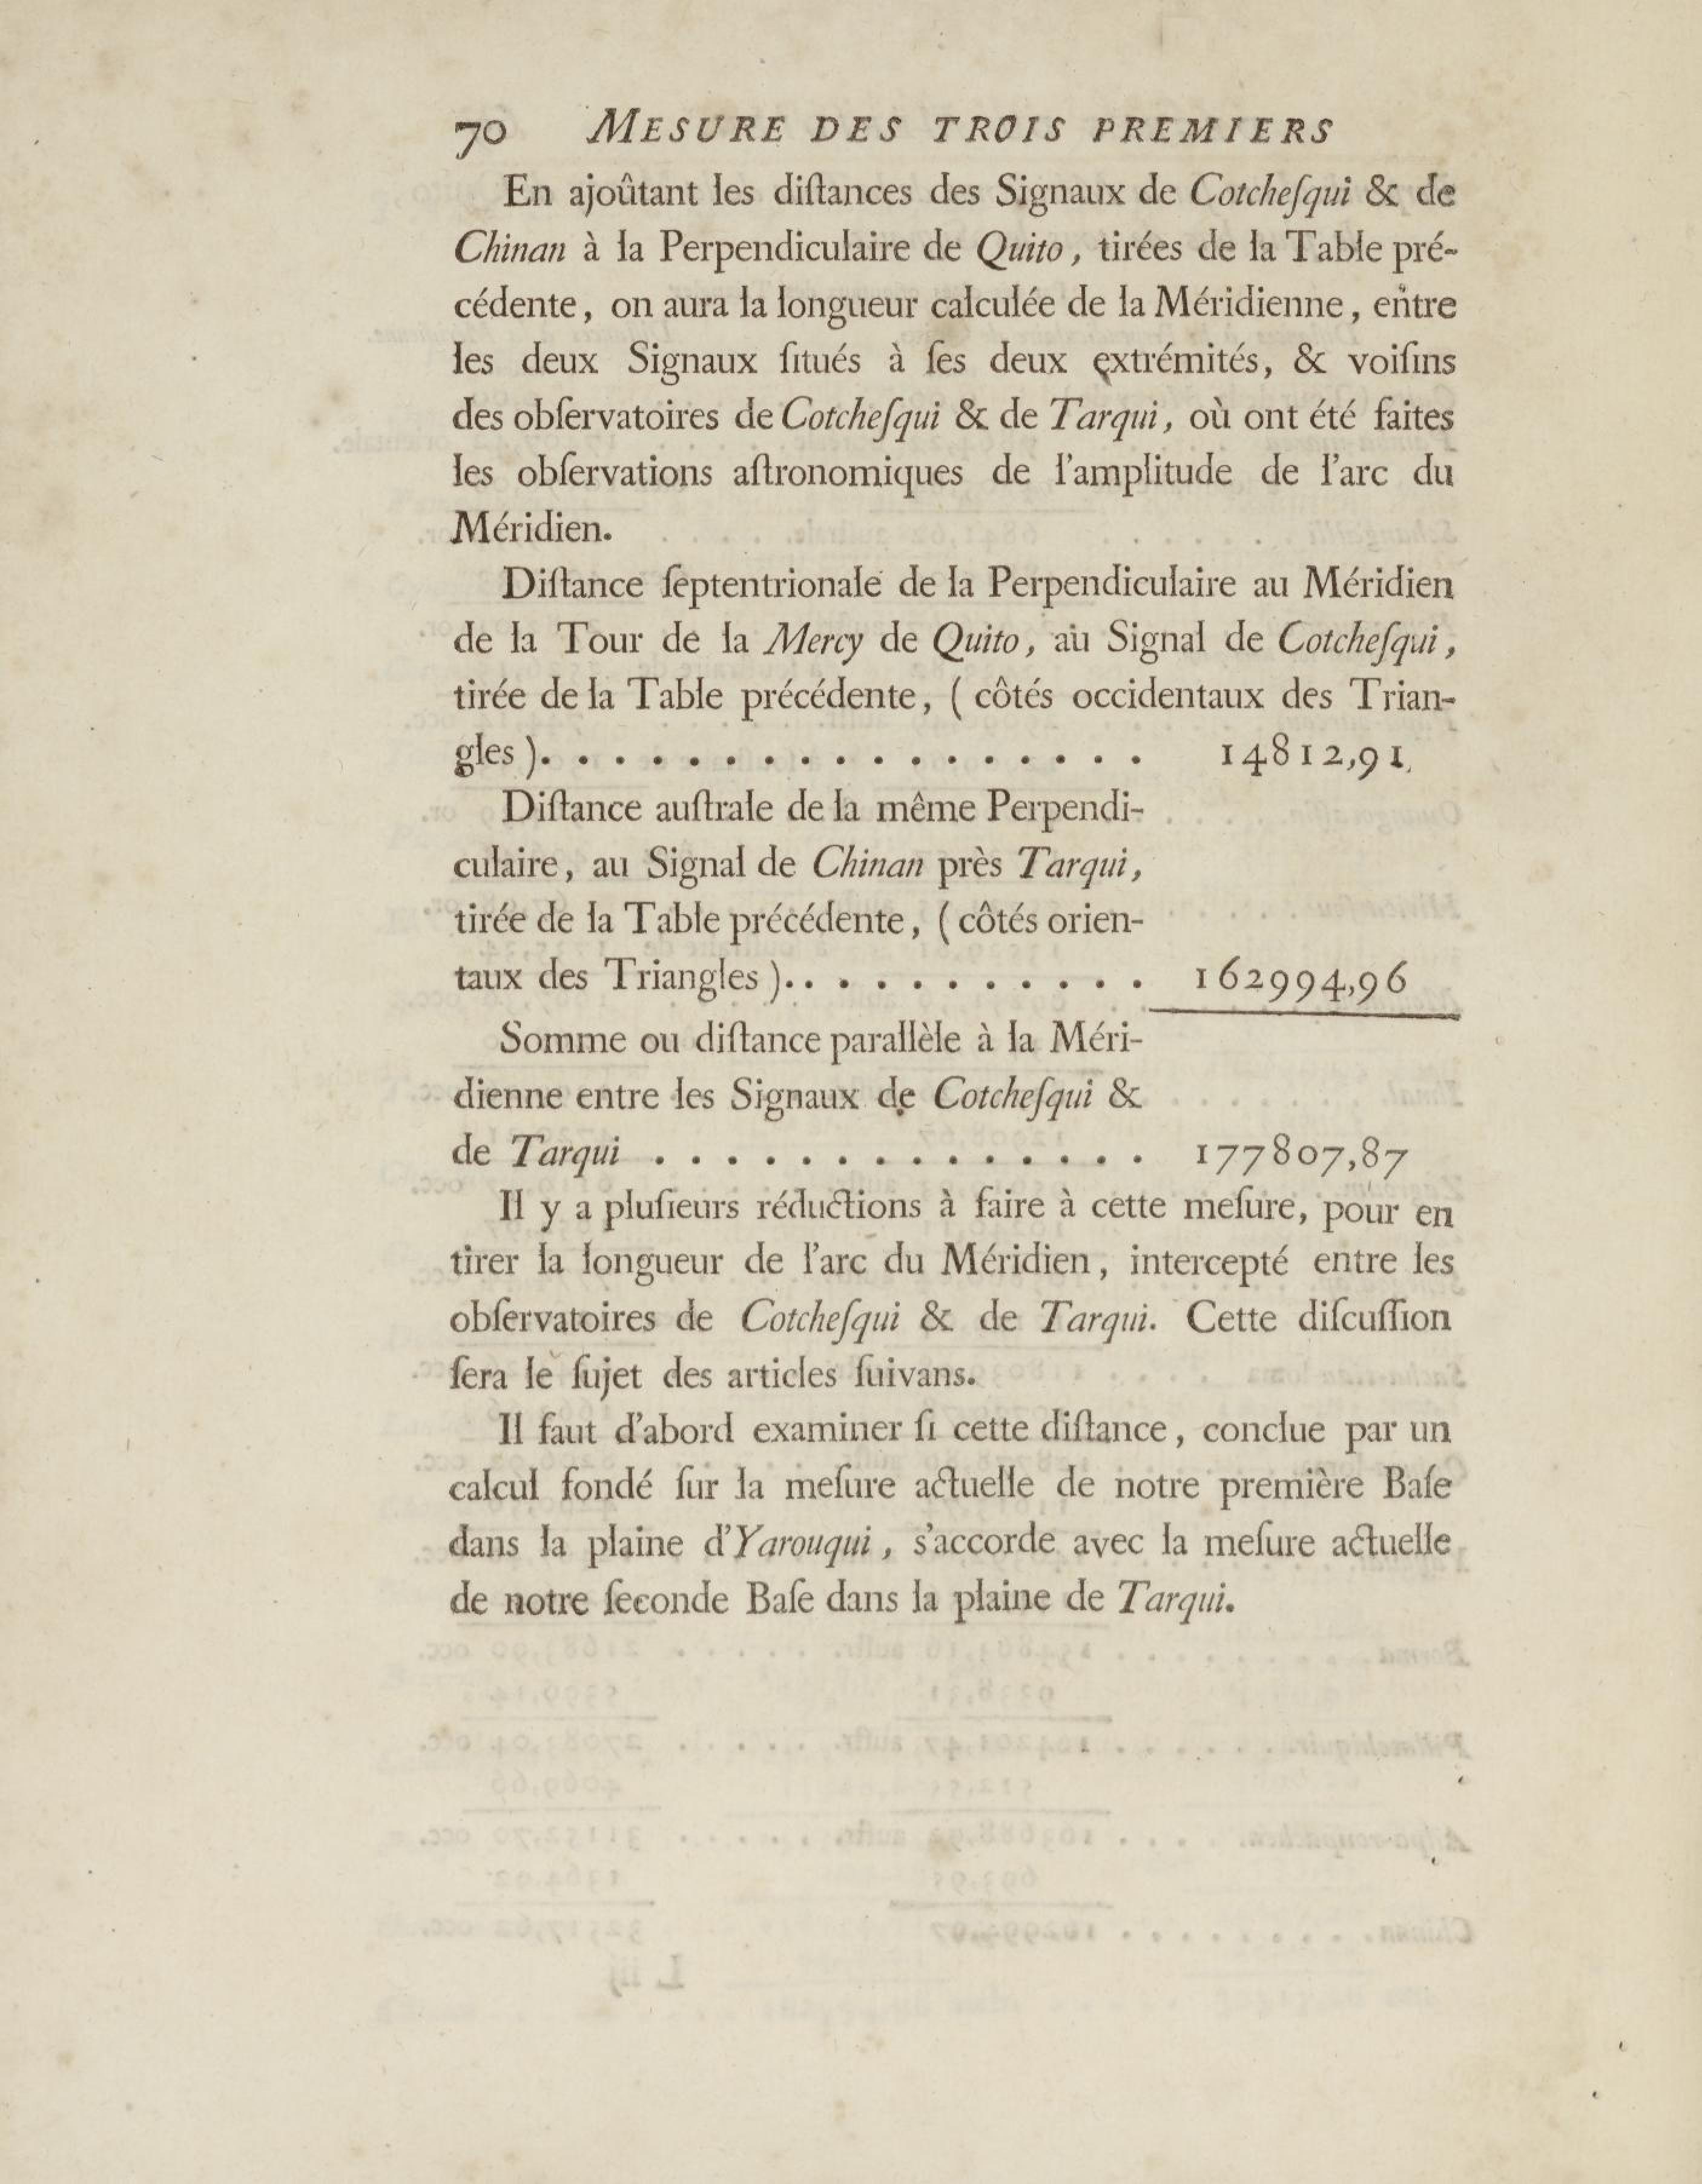 70 MESURE DES TROIS PREMIERS
En ajoûtant les diſtances des Signaux de Cotcheſqui & de
Chinan à la Perpendiculaire de Quito, tirées de la Table pré-
cédente, on aura la longueur calculée de la Méridienne, entre
les deux Signaux ſitués à ſes deux extrémités, & voiſins
des obſervatoires de Cotcheſqui & de Tarqui, où ont été faites
les obſervations aſtronomiques de l'amplitude de l'arc du
Méridien.
Diſtance ſeptentrionale de la Perpendiculaire au Méridien
de la Tour de la Mercy de Quito, au Signal de Cotcheſqui,
tirée de la Table précédente, (côtés occidentaux des Trian-
gles). . . . . . . . . . . . . . . . . 14812,91
Diſtance auſtrale de la même Perpendi-
culaire, au Signal de Chinan près Tarqui,
tirée de la Table précédente, (côtés orien-
taux des Triangles). . . . . . . . . . . 162994,96
Somme ou diſtance parallèle à la Méri-
dienne entre les Signaux de Cotcheſqui &
de Tarqui . . . . . . . . . . . . . . 177807,87
Il y a pluſieurs réductions à faire à cette meſure, pour en
tirer la longueur de l'arc du Méridien, intercepté entre les
obſervatoires de Cotcheſqui & de Tarqui. Cette diſcuſſion
ſera le ſujet des articles ſuivans.
Il faut d'abord examiner ſi cette diſtance, conclue par un
calcul fondé ſur la meſure actuelle de notre première Baſe
dans la plaine d'Yarouqui, s'accorde avec la meſure actuelle
de notre ſeconde Baſe dans la plaine de Tarqui.